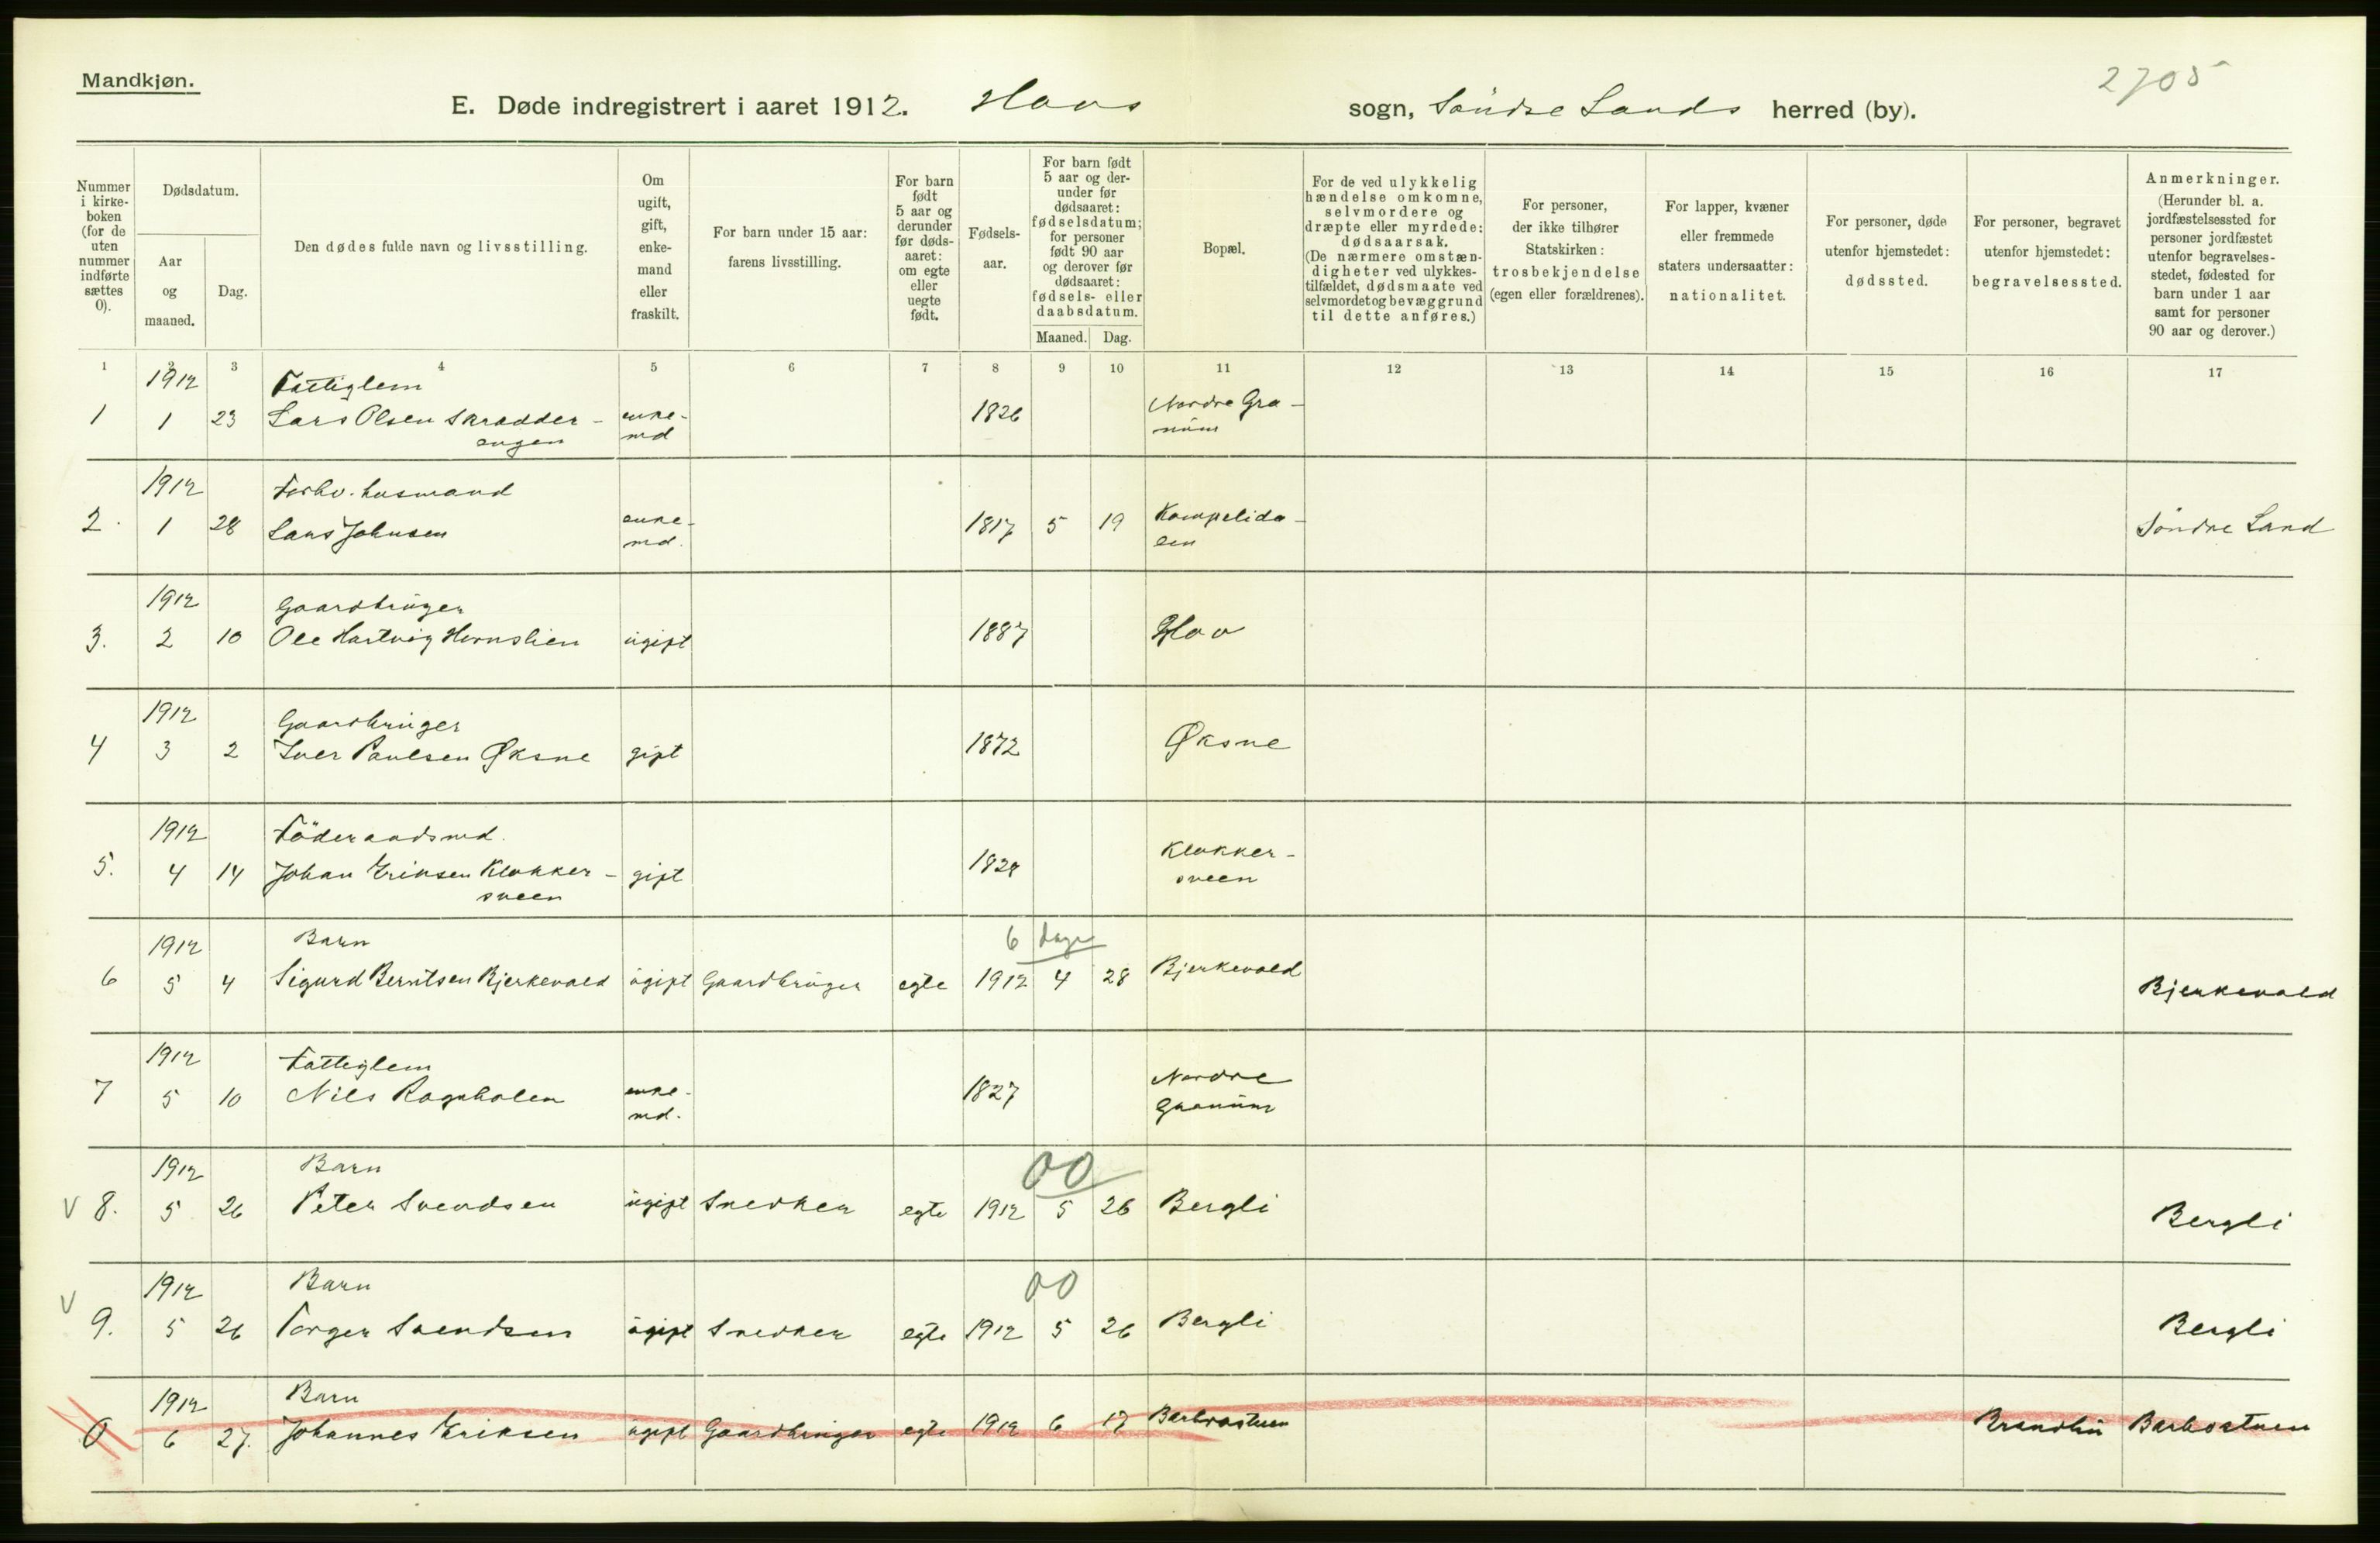 Mandkjøn.
2705
E. Døde indregistrert i aaret 1912. Hovs sogn, Söndre Lands herred (by).
Nummer i kirke-boken (for de uten nummer indførte sættes 0).
Dødsdatum.
Aar og maaned.
Dag.
Den dødes fulde navn og livsstilling.
Om ugift, gift, enke-mand eller fraskilt.
For barn under 15 aar: farens livsstilling.
For barn født 5 aar og derunder før døds-aaret: om egte eller uegte født.
Fødsels-aar.
For barn født 5 aar og der-under før dødsaaret: fødselsdatum; for personer født 90 aar og derover før dødsaaret: fødsels- eller daabsdatum.
Maaned. Dag.
Bopæl.
For de ved ulykkelig hændelse omkomne, selvmordere og dræpte eller myrdede: dødsaarsak. (De nærmere omstæn-digheter ved ulykkes-tilfældet, dødsmaate ved selvmordet og bevæggrund til dette anføres.)
For personer, der ikke tilhører Statskirken: trosbekjendelse (egen eller forældrenes).
For lapper, kvæner eller fremmede staters undersaatter: nationalitet.
For personer, døde utenfor hjemstedet: dødssted.
For personer, begravet utenfor hjemstedet: begravelsessted.
Anmerkninger. (Herunder bl. a. jordfæstelsessted for personer jordfæstet utenfor begravelses-stedet, fødested for barn under 1 aar samt for personer 90 aar og derover.)
1 2 3 4 5 6 7 8 9 10 11 12 13 14 15 16 17
1912 Fattiglem
1 1 23 Lars Olsen Skrædder- enke- 1826 Nordre Gra-
engen md num
1912 Forhv. husmand
2. 1 28 Lars Johnsen enke- 1817 5 19 Kompelida- Söndre Land
md. en
1912 Gaardbruger
3. 2 10 Ole Hartvig Hornslien ugift 1887 Hov
1912 Gaardbruger
4 3 2 Iver Paulsen Øksne gift 1872 Øksne
1912 Föderaadsmd.
5. 4 14 Johan Eriksen Klokker- gift 1828 Klokker-
sveen sveen
1912 Barn 6 dage
6 5 4 Sigurd Berntsen Bjerkevold ugift Gaardbruger egte 1912 4 28 Bjerkevold Bjerkevold
1912 Fattiglem
7 5 10 Nils Rognholen enke- 1827 Nordre
md. Granum
1912 Barn 00
V 8. 5 26 Peter Svendsen ugift Snedker egte 1912 5 26 Bergli Bergli
1912 Barn 00
V 9. 5 26 Torger Svendsen ugift Snedker egte 1912 5 26 Bergli Bergli
1912 Barn
0 6 27. Johannes Eriksen ugift Gaardbruger egte 1912 6 17 Barbrostuen Brandbu Barbostuen